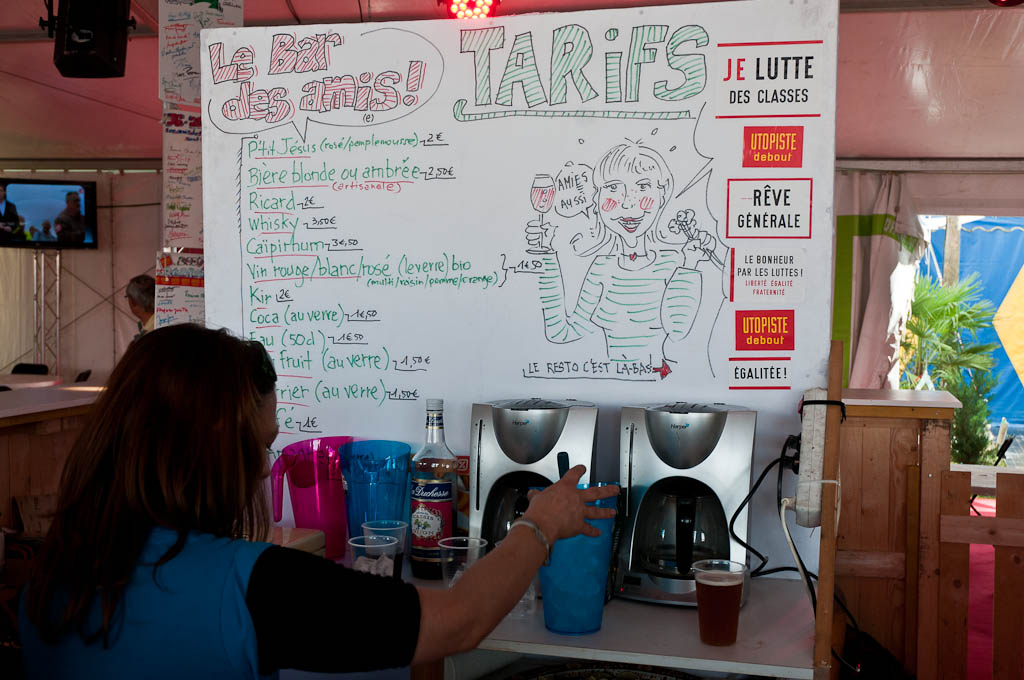 Le Bar
des amis!
(e)
TARiFS
P'tit Jésus (rosé/pamplemousse) 2€
Bière blonde ou ambrée 2,50€
(artisanale)
Ricard 2€
Whisky 3,50€
Caïpirhum 3€,50
Vin rouge/blanc/rosé (le verre) bio
(multi/raisin/pomme/orange)
1€50
Kir 2€
Coca (au verre) 1€,50
Eau (50cl) 1€50
fruit (au verre) 1,50€
rrier (au verre) 1,50€
fé 1€
AMIES
AUSSI
LE RESTO C'EST LÀ-BAS
JE LUTTE
DES CLASSES
UTOPISTE
debout
RÊVE
GÉNÉRALE
LE BONHEUR
PAR LES LUTTES !
LIBERTÉ ÉGALITÉ
FRATERNITÉ
UTOPISTE
debout
ÉGALITÉE !
Harper
Harper
Duchesse